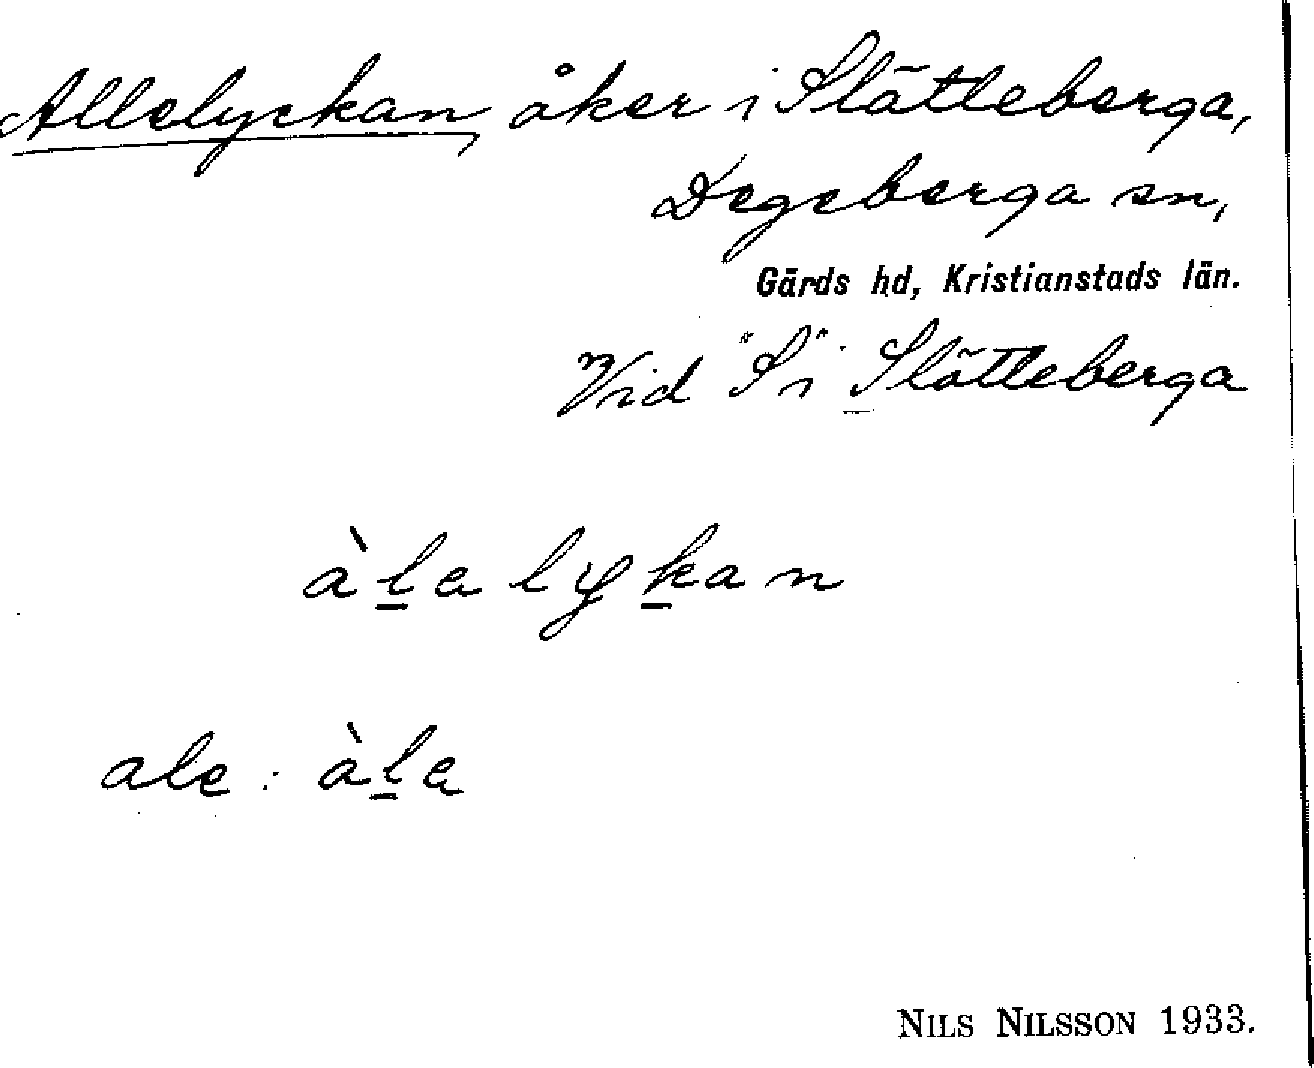 Allelyckan, åker i Slätteberga,
Degeberga sn,
Gärds hd, Kristianstads län.
Vid "S" i Slätteberga
àḻa lyḵan
ale: àḻa
NILS NILSSON 1933.